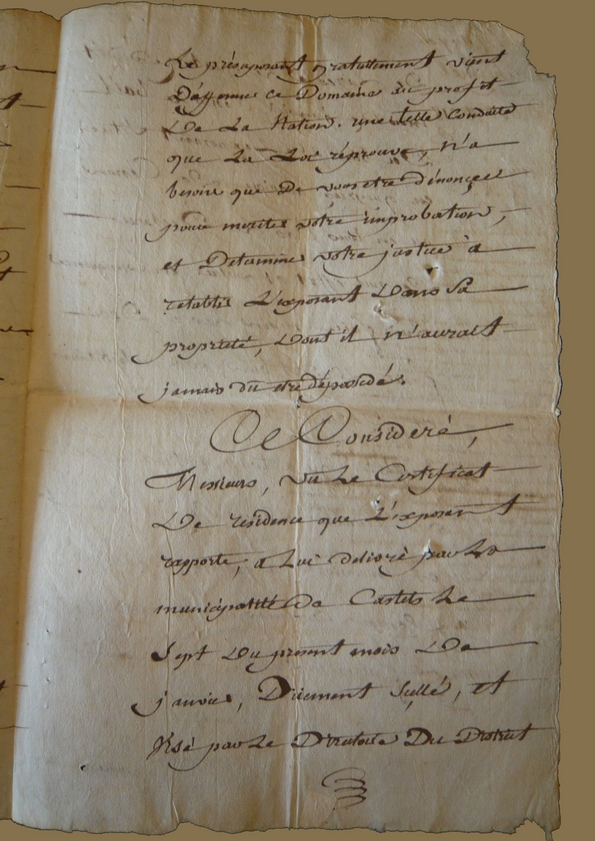 Le présuposant gratuittement vient
Dafferme ce Domaine au profit
De La Nation. une telle Conduite
que La Loi réprouve, n'a
besoin que De vous etre dénoncée
pour meriter votre improbation,
et Determiner votre justice a
retablir L'exposant Dans Sa
propriété, Dont il n'aurait
jamais du etre dépossedé.
Ce Consideré,
Messieurs, Vu Le Certificat
De résidence que L'exposant
rapporte, a Lui delivré par La
municipalité De Castets Le
Sept Du present mois De
janvier, Duement Sellé, et
Visé par Le Directoire Du District